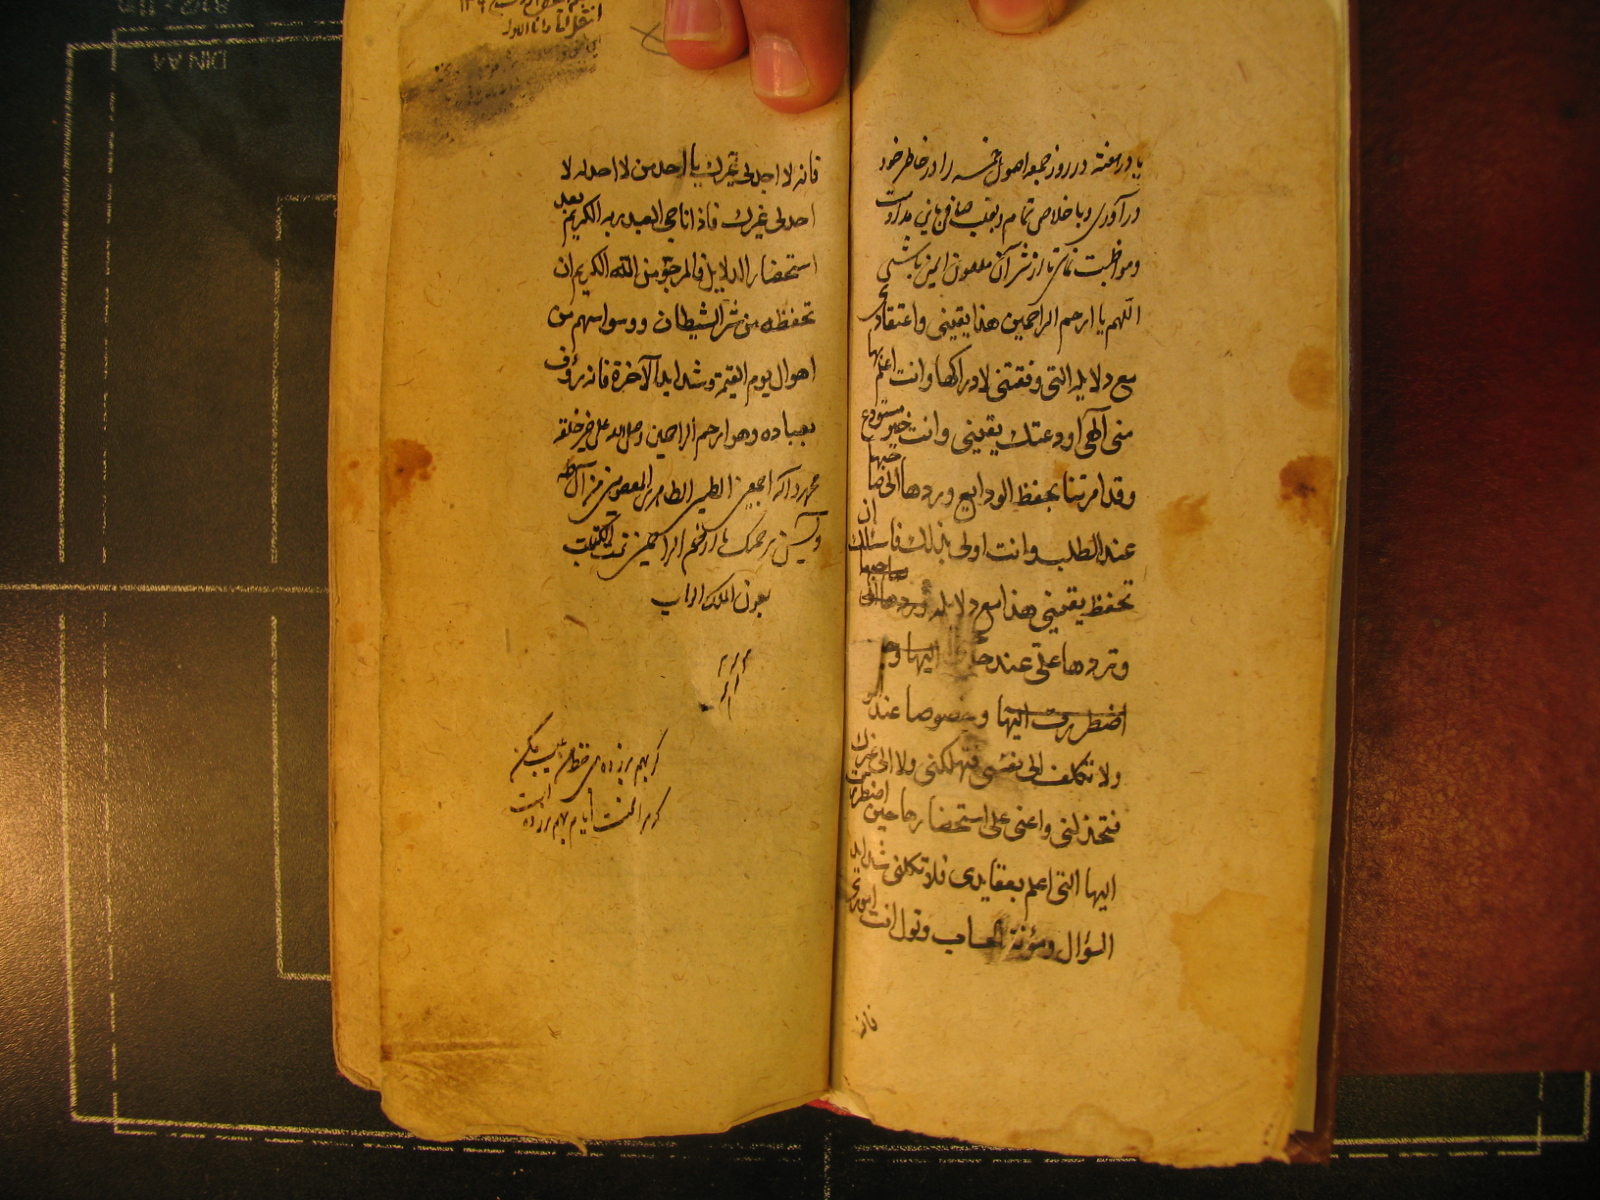 یا در هفته در روز جمعه اصول خمسه را در خاطر خود
در آوری و با خلاص تمام و بقلب صافی مداومت
و مواظبت نمائی تا از شر آن ملعون ایمن باشی
اللهم یا ارحم الراحمین هذا یقینی واعتقادی
مع دلایله التی وفقتنی لادراکها وانت اعلم بها
منی آلهی اودعتک یقینی وانت خیر مستودع
وقد امرتنا بحفظ الودایع وردها الی صاحبها
عند الطلب وانت اولی بذلک فاسئلک ان
تحفظ یقینی هذا مع دلایله وردها الی صاحبها
وتردها علی عند الیها و
اضطررت الیها وخصوصا عند
ولا تکلف الی نفسی فتهلکنی ولا الی غیرک
فتخذلنی واعنی علی استحضارها حین اضطررت
الیها التی اعلم بعقایدی فلا تکلنی شداید
السؤال ومؤنة الحساب وتول انت اموری
فانه
فانه لا اجد لی غیرک یا احد من لا احد له لا
احد لی غیرک فاذا ناجی العبد ربه الکریم بعد
استحضار الدلایل فالمرجو من الله الکریم ان
تحفظه من شر الشیطان ووسواسهم من
اهوال یوم القیمة وشداید الآخرة فانه رؤف
بعباده وهو ارحم الراحمین وصلی الله علی خیر خلقه
محمد وآله اجمعین الطیبین الطاهرین المعصومین من آل طه
و یس برحمتک یا ارحم الراحمین تمت الکتاب
بعون الملک الوهاب
گر بهم برزده بینی خط من عیب مکن
که مرا محنت ایام بهم برزده است